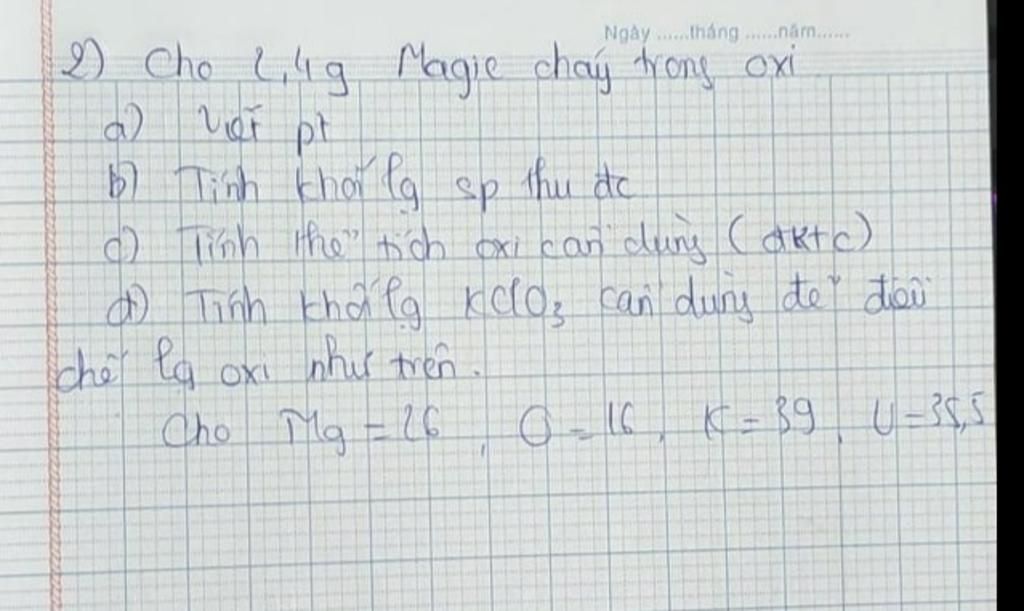 Ngày ......tháng ......năm......
2) Cho 2,4g Magie cháy trong oxi
a) Viết pt
b) Tính khối lg sp thu đc
c) Tính thể tích oxi cần dùng (đktc)
d) Tính khối lg KClO3 cần dùng để điều
chế lg oxi như trên.
Cho Mg = 26, O = 16, K = 39, Cl = 35,5